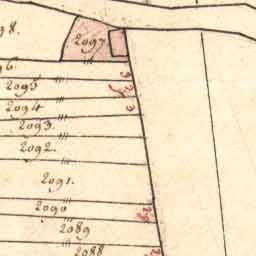 98.
2097
96.
2095
2094
2093.
2092.
2091.
2090
2089
2088